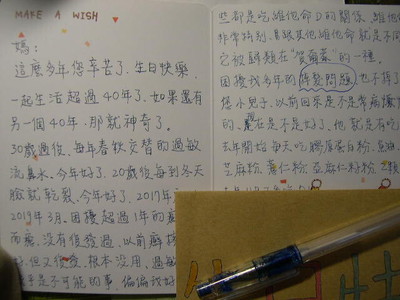 MAKE A WISH
媽：
這麼多年您辛苦了，生日快樂
一起生活超過40年了，如果還有
另一個40年，那就神奇了。
30歲過後，每年春秋交替的過敏
流鼻水，今年好了，20歲後每到冬天
臉就乾裂，今年好了，2017年
2019年3月，困擾超過1年的
而癒，沒有復發過，以前解
好但又復發，根本没用，過敏
是不可能的事，偏偏我好
些都是吃維他命D的關係，維他
非常特別，且跟其他維他命就是不同
它被歸類在"賀爾蒙"的一種。
困擾我多年的 問題也不得了
您小兒子，以前回來是不是常病
的，現在是不是好了，他就是有吃
去年開始每天吃膠原蛋白粉
芝麻粉，薏仁粉，亞麻仁籽粉